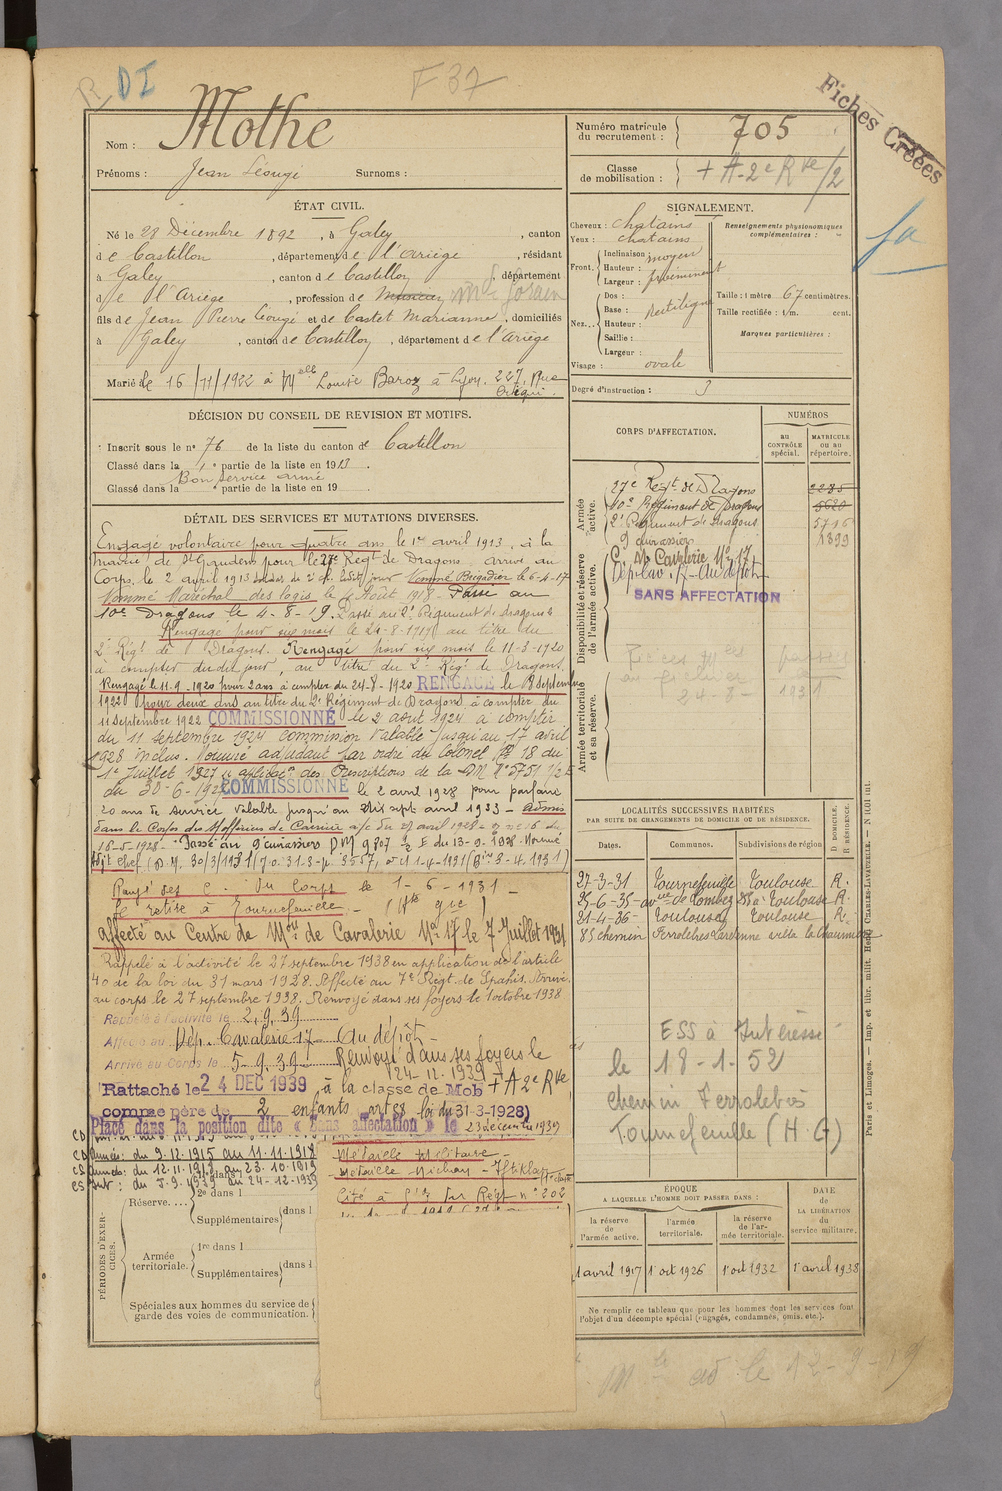 R DI
F 37
Fiches Créées
fa
Nom : Mothe
Prénoms : Jean Léougé Surnoms :
Numéro matricule du recrutement : 705
Classe de mobilisation : + A - 2e Rve/2
ÉTAT CIVIL.
Né le 28 Décembre 1892, à Galey, canton
de Castillon, département de l'Ariège, résidant
à Galey, canton de Castillon, département
de l'Ariège, profession de
fils de Jean Pierre Lougé et de Castet Marianne, domiciliés
à Galey, canton de Castillon, département de l'Ariège
Marié le 16/11/1922 à Melle Louise Baroz à Lyon. 227, Rue
SIGNALEMENT.
Cheveux : chatains
Yeux : chatains
Front. Inclinaison moyen
Hauteur : proéminent
Largeur :
Nez... Dos :
Base : rectiligne
Hauteur :
Saillie :
Largeur :
Visage : ovale
Renseignements physionomiques complémentaires :
Taille : 1 mètre 67 centimètres.
Taille rectifiée : 1/m. cent.
Marques particulières :
Degré d'instruction : 3
DÉCISION DU CONSEIL DE REVISION ET MOTIFS.
Inscrit sous le n° 76 de la liste du canton de Castillon
Classé dans la 1e partie de la liste en 1913.
Bon service armé
Classé dans la e partie de la liste en 19
DÉTAIL DES SERVICES ET MUTATIONS DIVERSES.
Engagé volontaire pour quatre ans le 1er avril 1913, à la
mairie de St Gaudens pour le 27e Régt de Dragons arrivé au
Corps, le 2 avril 1913 soldat de 2e cl. ledit jour Nommé Brigadier le 6-4-17
Nommé Maréchal des logis le Août 1918 - Passé au
10e Dragons le 4-8-19. Passé au 2e Régiment de dragons
Rengagé pour six mois le 24-8-1919 au titre du
2e Régt de Dragons. Rengagé pour six mois le 11-3-1920
à compter dudit jour, au titre du 2e Régt de Dragons.
Rengagé le 11-9-1920 pour 2 ans à compter du 24-8-1920 RENGAGÉ le 8 septembre
1922 pour deux ans au titre du 2e Régiment de Dragons à compter du
11 septembre 1922 COMMISSIONNÉ le 2 août 1924 à compter
du 11 septembre 1924 commission valable jusqu'au 17 avril
1928 inclus. Nommé adjudant par ordre du Colonel N° 18 du
1er Juillet 1927 applicaon des Prescriptions de la DM N° 5751 1/2 E
du 30-6-192 COMMISSIONNÉ le 2 avril 1928 pour parfaire
20 ans de service valable jusqu'au dix sept avril 1933 - Admis
dans le Corps des S/officiers de Carrière a/c du 17 avril 1928 - du
16-5-1928 - Passé au 9 cuirassiers DM 9807 2/2 E du 13-9-1928. Nommé
Adjt chef (D.M. 30/3/1931 (J.O. 31.3-p. 3557) 1-4-1931 3-4-1931)
Rayé des C. du Corps le 1-6-1931 -
Se retire à Tournefeuille - (Hte Gne)
affecté au Centre de Mon de Cavalerie No 17 le 7 Juillet 1931
Rappelé à l'activité le 27 septembre 1938 en application de l'article
40 de la loi du 31 mars 1928. Affecté au 7e Régt de Spahis. Arrivé
au corps le 27 septembre 1938. Renvoyé dans ses foyers le 1 octobre 1938
Rappelé à l'activité le 2.9.39
Affecté au Dép. Cavalerie 17 Au dépôt -
Arrivé au Corps le 5.9.39 Renvoyé dans ses foyers le
24-12.1939
Rattaché le 24 DEC 1939, à la classe de Mob + A 2e Rve
comme père de 2 enfants art 58 loi du 31-3-1928)
Placé dans la position dite « Sans affectation » le 23 décembre 1939
CD Armées : du 9.12.1915 au 11.11.1918
CS Armée : du 12.11.1918 au 23.10.1919
CS Int : du 5.9.1939 au 24-12-1939
Médaille Militaire -
Médaille Nichan - Iftikar
Cité à l'o. du Régt n° 202
CORPS D'AFFECTATION.
NUMÉROS
AU CONTRÔLE spécial.
MATRICULE OU AU répertoire.
Armée active.
27e Régt de Dragons 2285
10e Régiment de Dragons 5620
2e Régiment de dragons 5716
9 cuirassiers 1899
Disponibilité et réserve de l'armée active.
C. M. Cavalerie No 17
Dép. Cav. 17 - Au dépôt
SANS AFFECTATION
Pièces Mles passées
au fichier la
24-8-1931
Armée territoriale et sa réserve.
LOCALITÉS SUCCESSIVES HABITÉES
PAR SUITE DE CHANGEMENTS DE DOMICILE OU DE RÉSIDENCE.
Dates. Communes. Subdivisions de région D DOMICILE. R RÉSIDENCE.
27-3-31 Tournefeuille Toulouse R.
25-6-35 avnue de Lombez Toulouse R.
21-4-36 - Toulouse Toulouse R.
85 chemin Ferrolebres Lardenne villa la Chaumière
ESS à Intéressé
le 18-1-52
chemin Ferrolebrès
Tournefeuille (H.G)
PÉRIODES D'EXERCICES.
Réserve....
2e dans l
Supplémentaires dans l
Armée territoriale.
1re dans l
Supplémentaires dans l
Spéciales aux hommes du service de garde des voies de communication.
ÉPOQUE
A LAQUELLE L'HOMME DOIT PASSER DANS :
la réserve de l'armée active.
l'armée territoriale.
la réserve de l'armée territoriale.
DATE DE LA LIBÉRATION du service militaire.
1 avril 1917 1er oct 1926 1er oct 1932 1er avril 1938
Ne remplir ce tableau que pour les hommes dont les services font
l'objet d'un décompte spécial (engagés, condamnés, omis, etc.).
Paris et Limoges. — Imp. et libr. milit. Henri CHARLES-LAVAUZELLE.
le 12-9-19